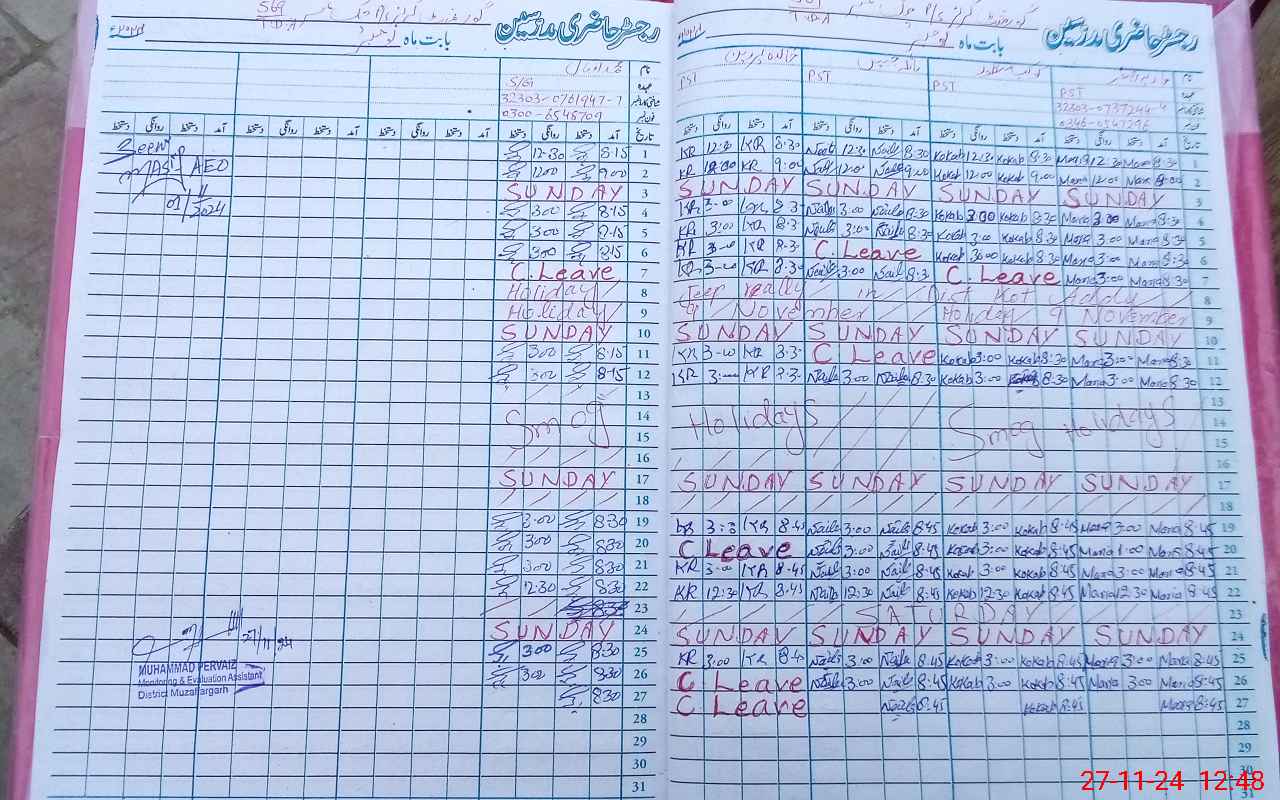 رجسٹر حاضری مدرسین
بابت ماہ نومبر
S/G
32303-0761947-7
0300-6548709
تاریخ آمد دستخط روانگی دستخط
Seen
AEO
1 8:15 12:30
2 9:00 12:00
3 SUNDAY
4 8:15 3:00
5 8:15 3:00
6 8:15 3:00
7 C.Leave
8 Holiday
9 Holiday
10 SUNDAY
11 8:15 3:00
12 8:15 3:00
13
14 Smog
15
16
17 SUNDAY
18
19 8:30 3:00
20 8:30 3:00
21 8:30 3:00
22 8:30 12:30
23
24 SUNDAY
25 8:30 3:00
26 8:30 3:00
27 8:30
28
29
30
31
27/11/24
MUHAMMAD PERVAIZ
Monitoring & Evaluation Assistant
District Muzaffargarh
رجسٹر حاضری مدرسین
بابت ماہ نومبر
PST PST PST PST
32303-0737244-4
0346-0547296
تاریخ آمد دستخط روانگی دستخط
KR 12:30 KR 8:30 Naila 12:30 Naila 8:30 Kokab 12:30 Kokab 8:30 Maria 12:30 Maria 8:30 1
KR 12:00 KR 9:00 Naila 12:00 Naila 9:00 Kokab 12:00 Kokab 9:00 Maria 12:00 Maria 2
SUNDAY SUNDAY SUNDAY SUNDAY 3
KR 3:00 KR 8:3 Naila 3:00 Naila 8:30 Kokab 3:00 Kokab 8:30 Maria 3:00 Maria 8:30 4
KR 3:00 KR 8:3 Naila 3:00 Naila 8:30 Kokab 3:00 Kokab 8:30 Maria 3:00 Maria 8:30 5
KR 3:00 KR 8:3 C.Leave Kokab 3:00 Kokab 8:30 Maria 3:00 Maria 8:30 6
KR 3:00 KR 8:30 Naila 3:00 Naila 8:3 C.Leave Maria 3:00 Maria 8:30 7
Jeep really in Dist Kot Addu 8
9 November Holiday 9 November 9
SUNDAY SUNDAY SUNDAY SUNDAY 10
KR 3:00 KR 8:3 C Leave Kokab 3:00 Kokab 8:30 Maria 3:00 Maria 8:30 11
KR 3:00 KR 8:3 Naila 3:00 Naila 8:30 Kokab 3:00 8:30 Maria 3:00 Maria 8:30 12
13
Holidays Smog Holidays 14
15
16
SUNDAY SUNDAY SUNDAY SUNDAY 17
18
KR 3:0 KR 8:45 Naila 3:00 Naila 8:45 Kokab 3:00 Kokab 8:45 Maria 3:00 Maria 8:45 19
C Leave Naila 3:00 Naila 8:45 Kokab 3:00 Kokab 8:45 Maria 1:00 Maria 8:45 20
KR 3:00 KR 8:45 Naila 3:00 Naila 8:45 Kokab 3:00 Kokab 8:45 Maria 3:00 Maria 8:45 21
KR 12:30 KR 8:45 Naila 12:30 Naila 8:45 Kokab 12:30 Kokab 8:45 Maria 12:30 Maria 8:45 22
SATURDAY 23
SUNDAY SUNDAY SUNDAY SUNDAY 24
KR 3:00 KR 8:4 Naila 3:00 Naila 8:45 Kokab 3:00 Kokab 8:45 Maria 3:00 Maria 8:45 25
C Leave Naila 3:00 Naila 8:45 Kokab 3:00 Kokab 8:45 Maria 3:00 Maria 8:45 26
C Leave Naila 8:45 Kokab 8:45 Maria 8:45 27
28
29
30
31
27-11-24 12:48